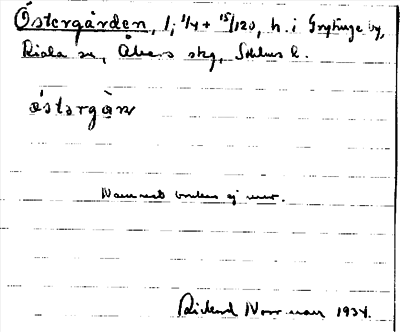 Östergården, 1, 1/4 + 15/120, h. i Grytinge by,
Riala sn, Åkers skg, Sthlms l.
östərgàṇ
Namnet brukas ej mer.
Rickard Norrman 1934.